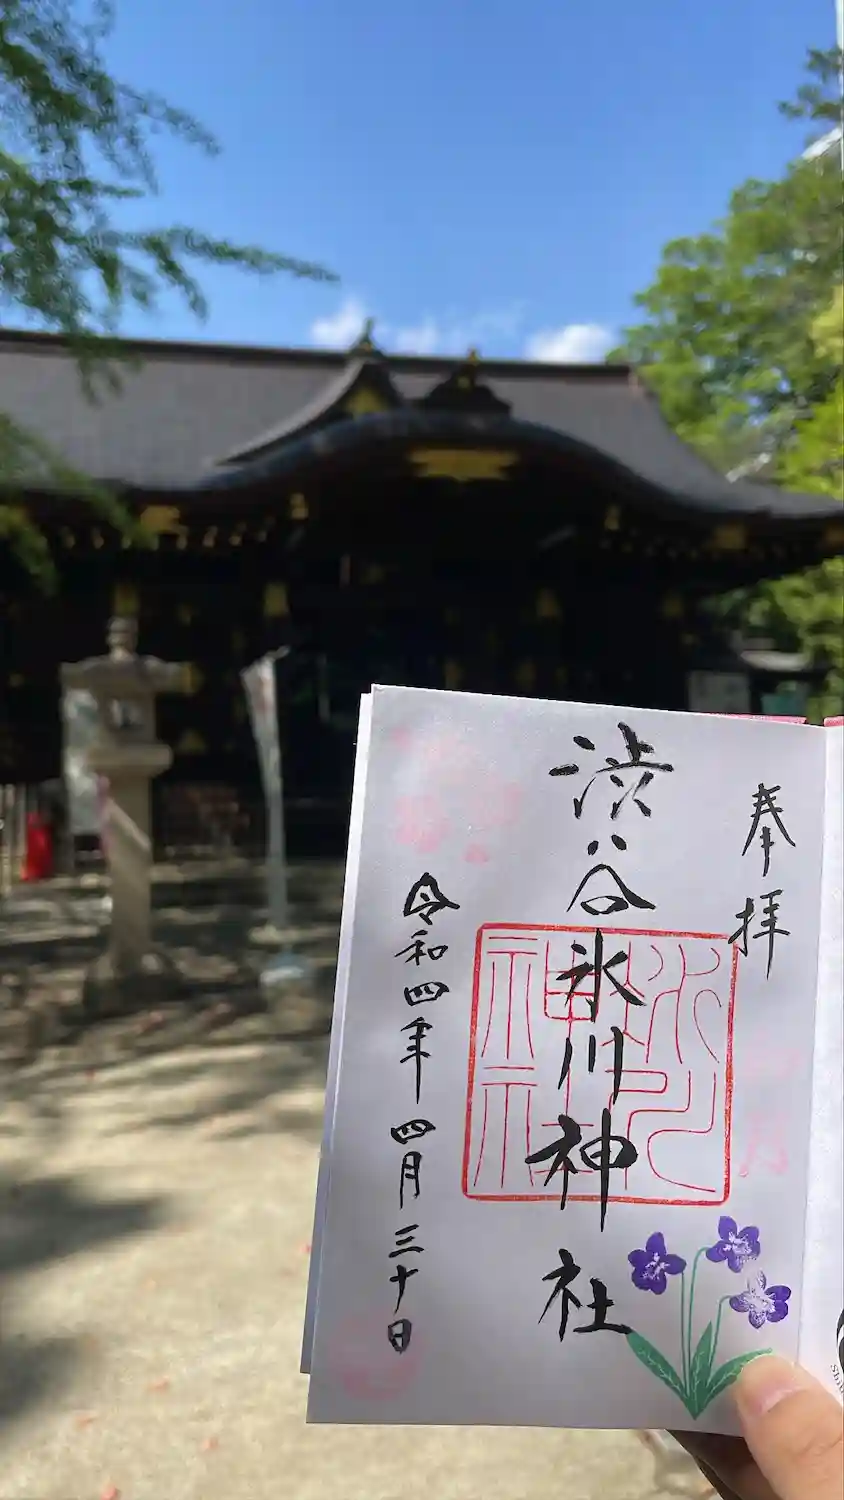 奉拝
渋谷氷川神社
氷川神社
令和四年四月三十日